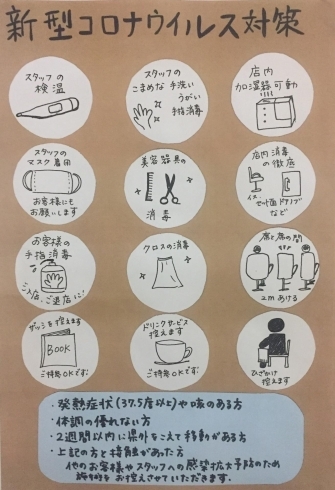 新型コロナウイルス対策
スタッフの
検温
スタッフの
こまめな手洗い
うがい
手指消毒
店内
加湿器可動
スタッフの
マスク着用
お客様にも
お願いします
美容器具の
消毒
店内消毒
の徹底
イス
セット面 ドアノブ
など
お客様の
手指消毒
ご入店、ご退店に!
クロスの消毒
席と席の間
2mあける
ザッシを控えます
BOOK
ご持参OKです!
ドリンクサービス
控えます
ご持参OKです!
ひざかけ
控えます
・発熱症状(37.5度以上)や咳のある方
・体調の優れない方
・2週間以内に県外をこえて移動がある方
・上記の方と接触があった方
他のお客様やスタッフへの感染拡大予防のため
施術をお控えさせていただきます。